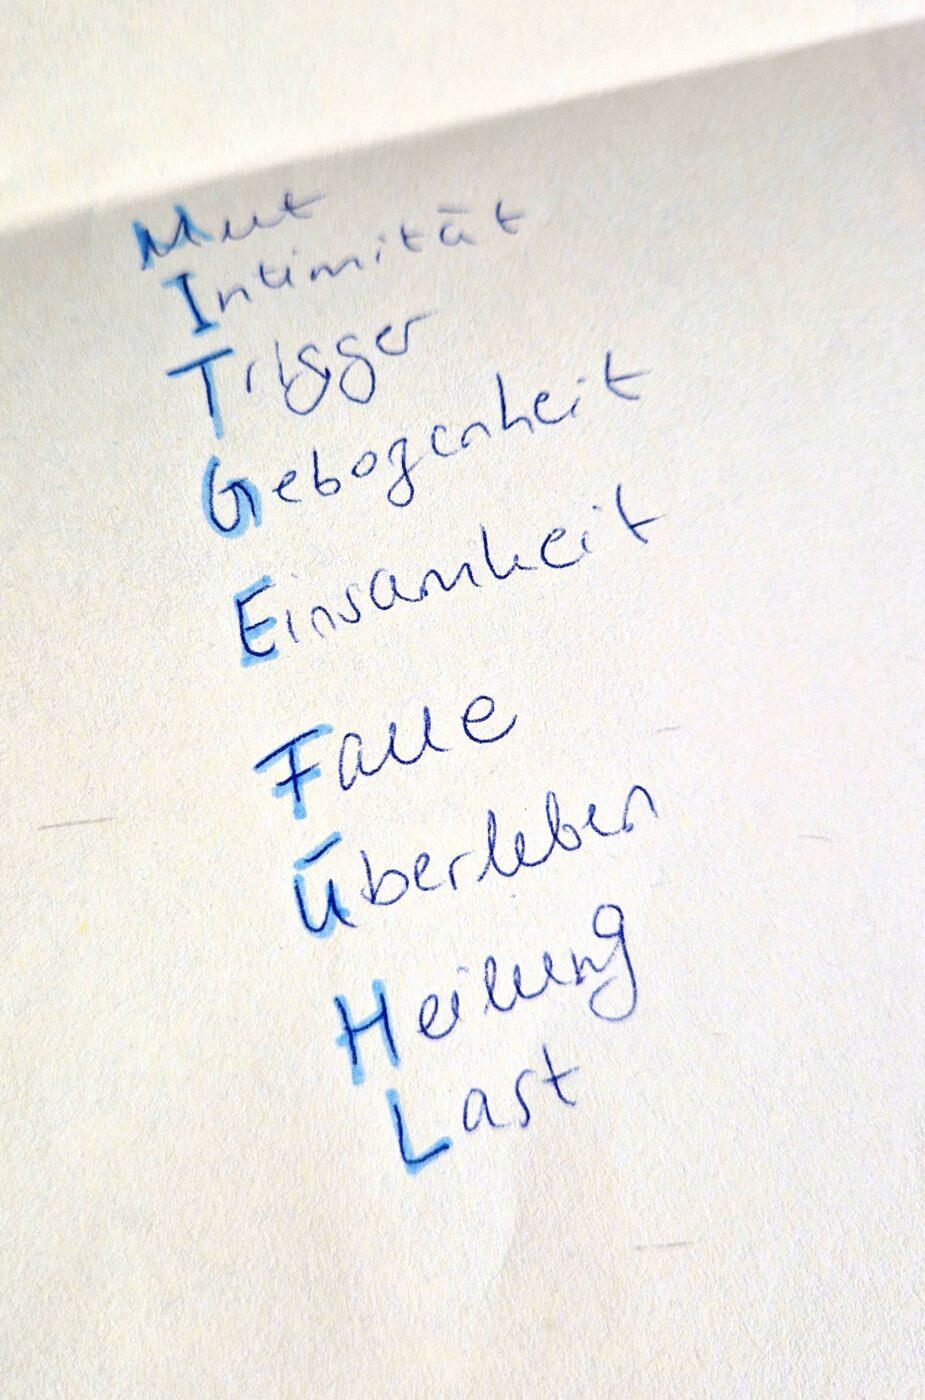 Mut
Intimität
Trigger
Gebogenheit
Einsamkeit
Falle
Überleben
Heilung
Last